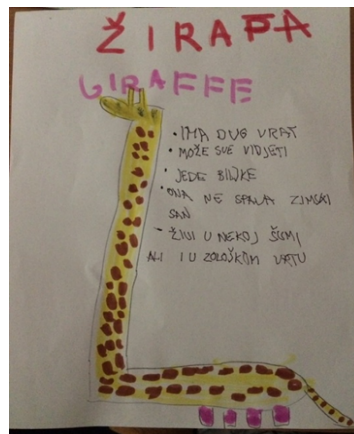 ŽIRAFA
GIRAFFE
• IMA DUG VRAT
• MOŽE SVE VIDJETI
• JEDE BILJKE
• ONA NE SPAVA ZIMSKI
SAN
- ŽIVI U NEKOJ ŠUMI
ALI I U ZOLOŠKOM VRTU